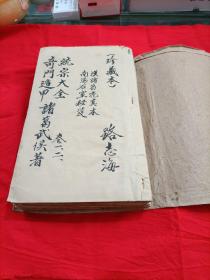 (珍藏本)
路志海
漢諸葛亮真本
南陽石室秘
統宗大全 卷一二
奇門遁甲 諸葛武侯著